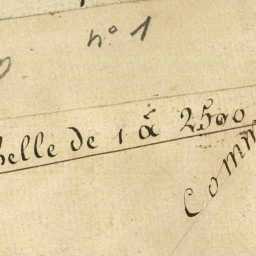 n° 1
elle de 1 à 2500
Comm